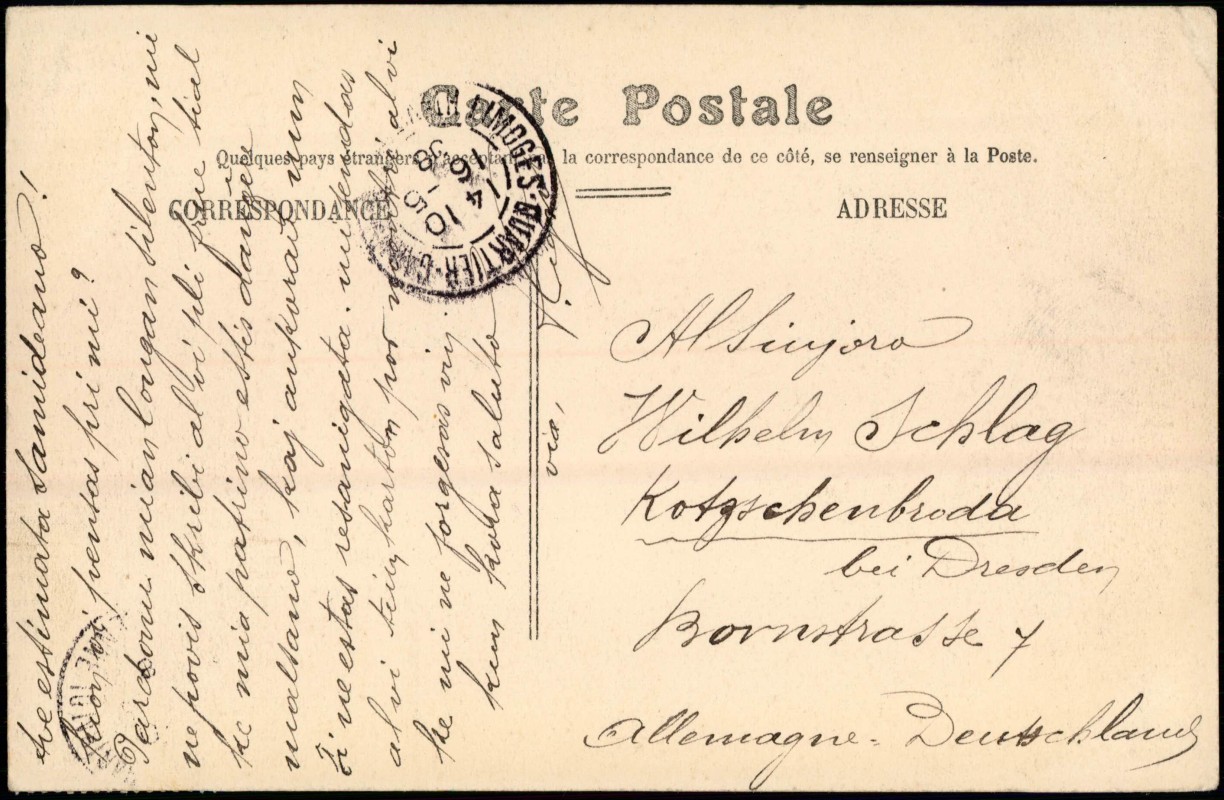 Carte Postale
Quelques pays étrangers n'acceptant pas la correspondance de ce côté, se renseigner à la Poste.
CORRESPONDANCE
ADRESSE
LIMOGES-QUARTIER-GARE
16
14 10
estimata Samideano!
Kion vi pensas pri mi?
Pardonu mian longan silenton, mi
ne povis skribi al vi pli frue tial
ke mia patrino estis danĝere
malsano, kaj ankoraŭ nun
ŝi ne estas resanigata. mi sendas
al vi tiun karton por
al vi
ke mi ne forgesas vin.
kun kora saluto
via,
Al Sinjoro
Wilhelm Schlag
Kotzschenbroda
bei Dresden
Bornstrasse 7
Allemagne - Deutschland